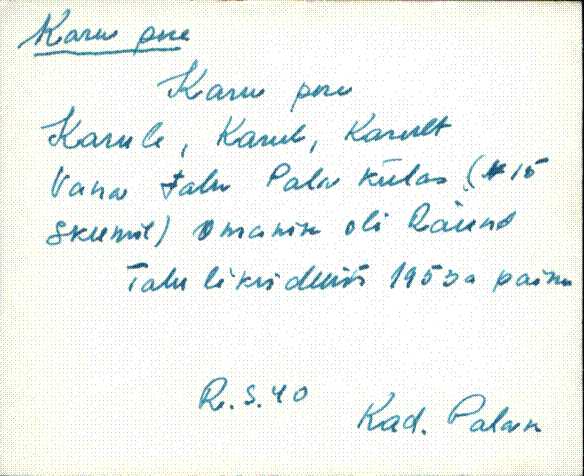 Karu pere
Karu pere
Karule, Karul, Karult
Vana talu Pala külas (№ 15
skeemil) Omanik oli Räund
Talu likvideeriti 1953a paiku
R.S. 40
Kad. Palak